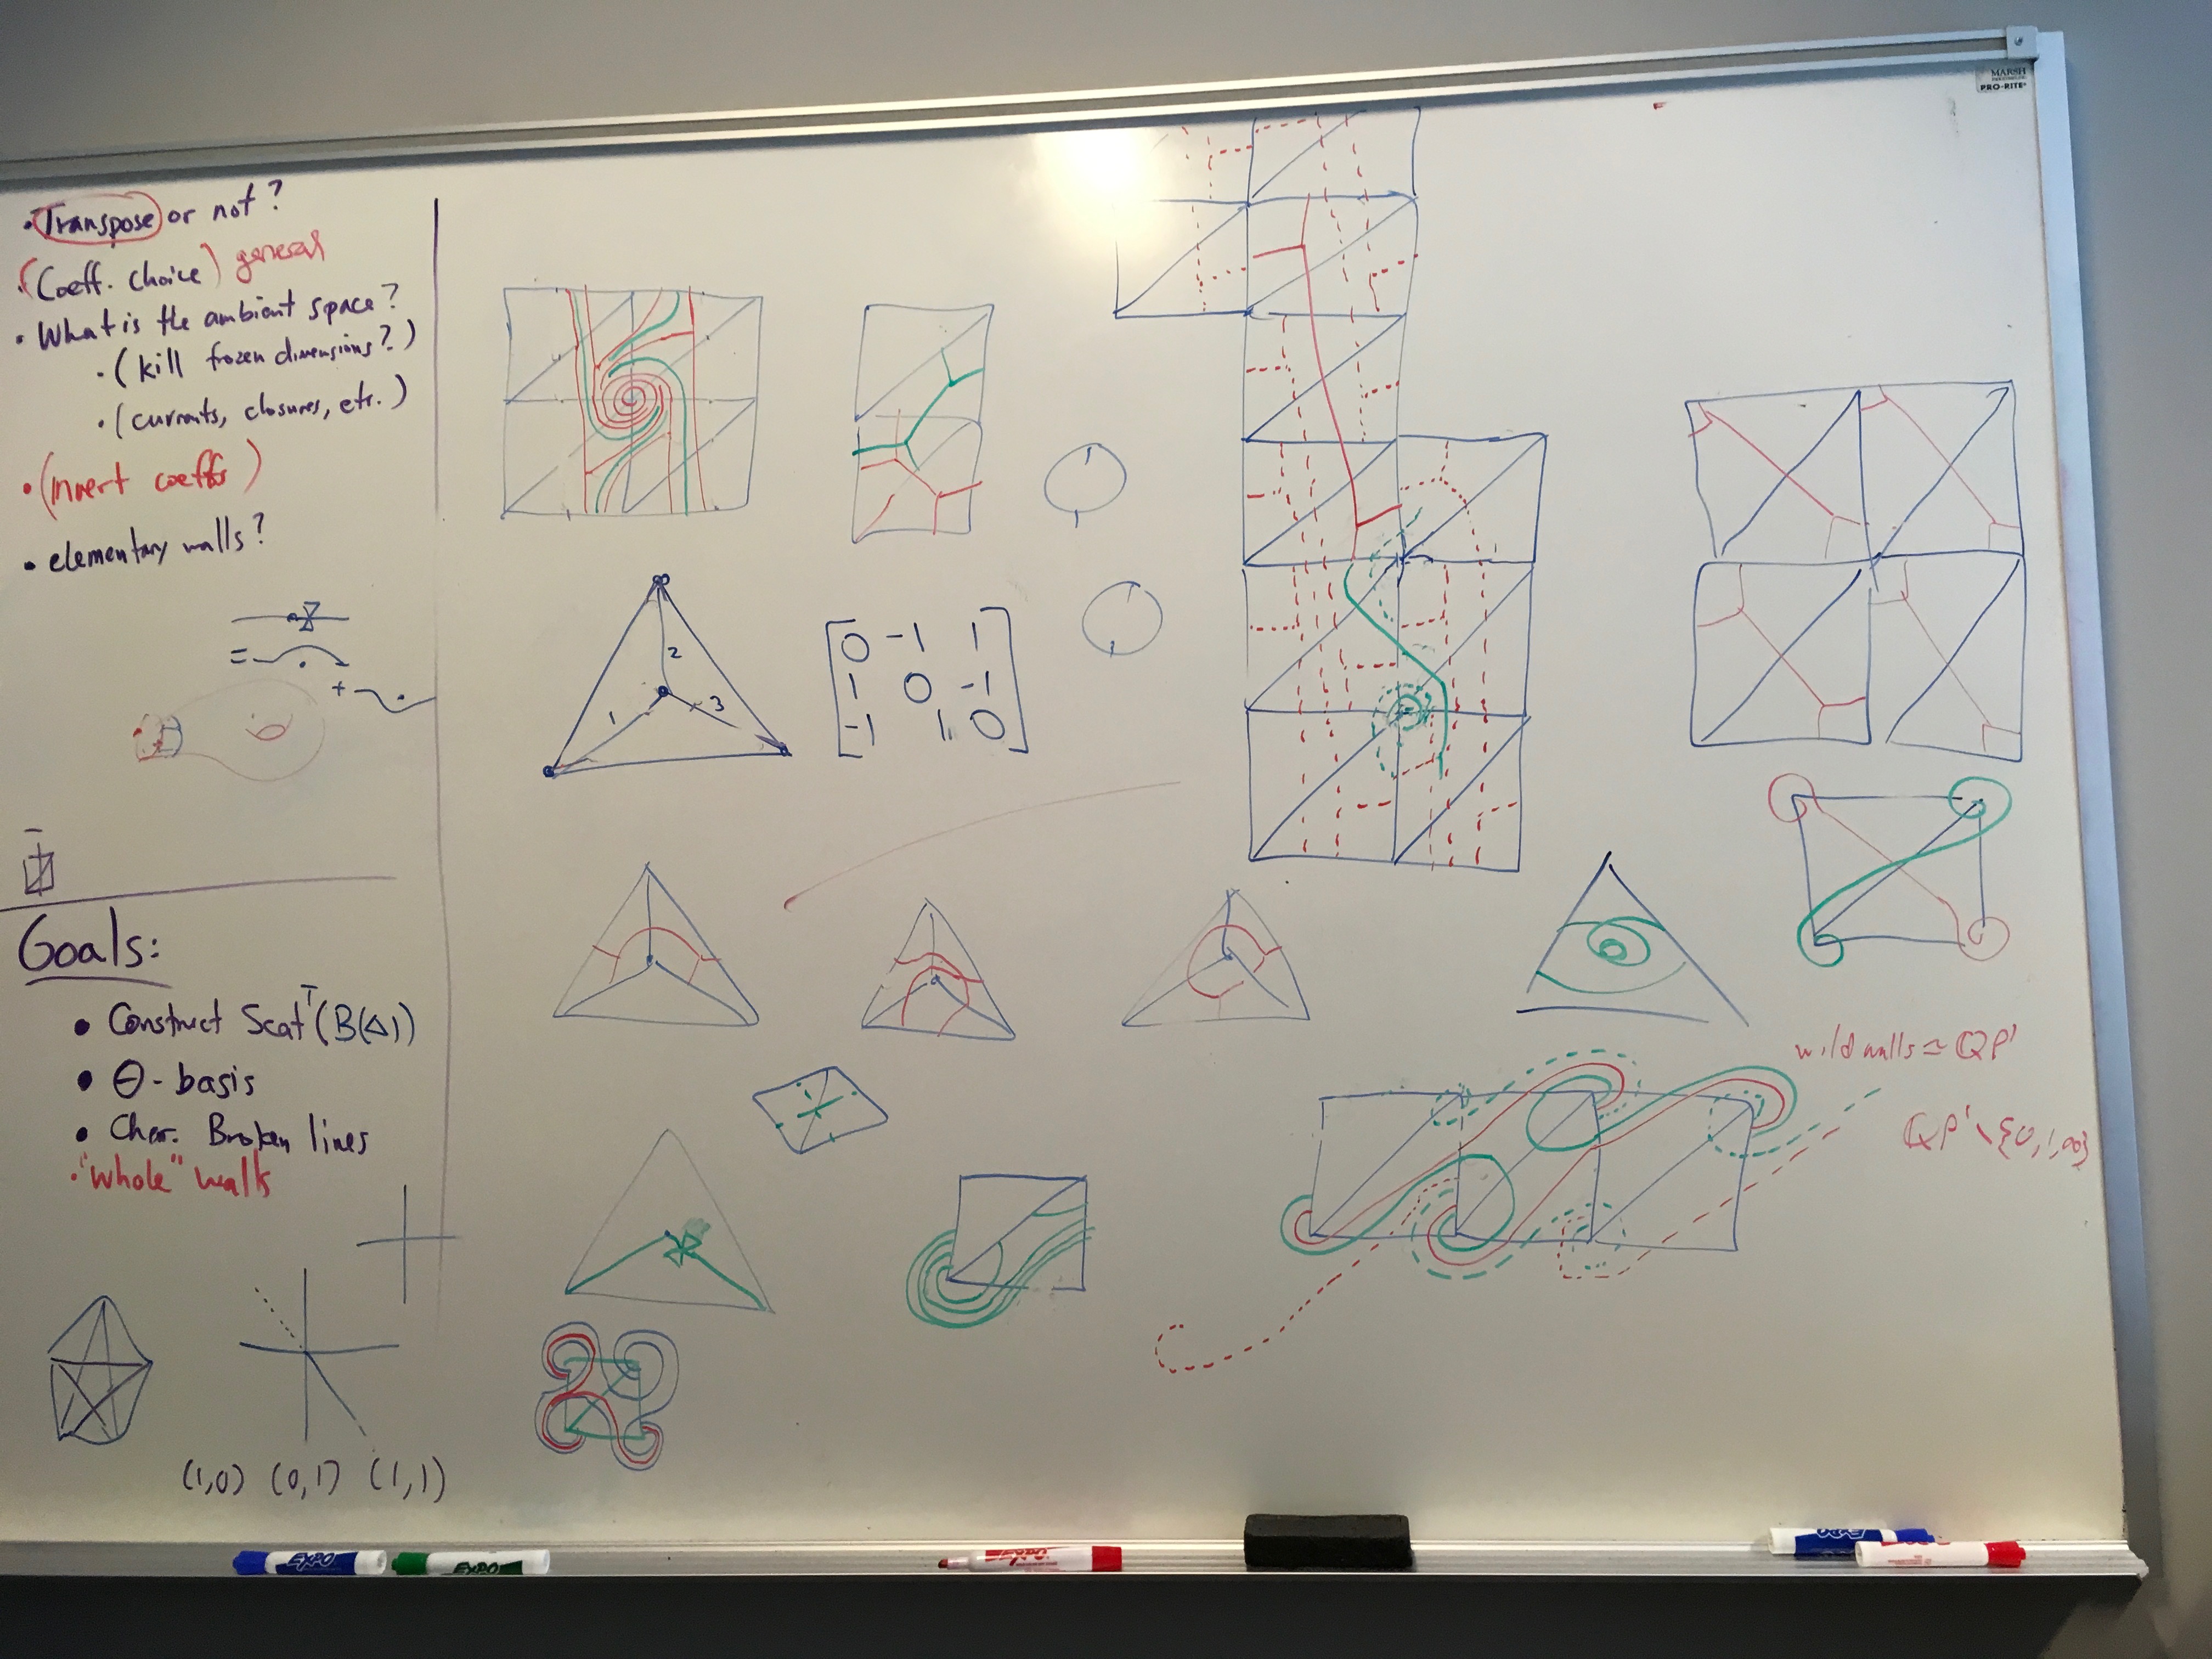 • Transpose or not?
• (Coeff. choice) general
• What is the ambient space?
• (kill frozen dimensions?)
• (currents, closures, etc.)
• (invert coeffs)
• elementary walls?
=
+
Goals:
• Construct Scat^T(B(Δ))
• Θ-basis
• Char. Broken lines
• "whole" walls
(1,0) (0,1) (1,1)
2
1 3
0 -1 1
1 0 -1
-1 1 0
wild walls ≃ QP¹
QP¹ \ {0,1,∞}
MARSH
PRO-RITE
EXPO
EXPO